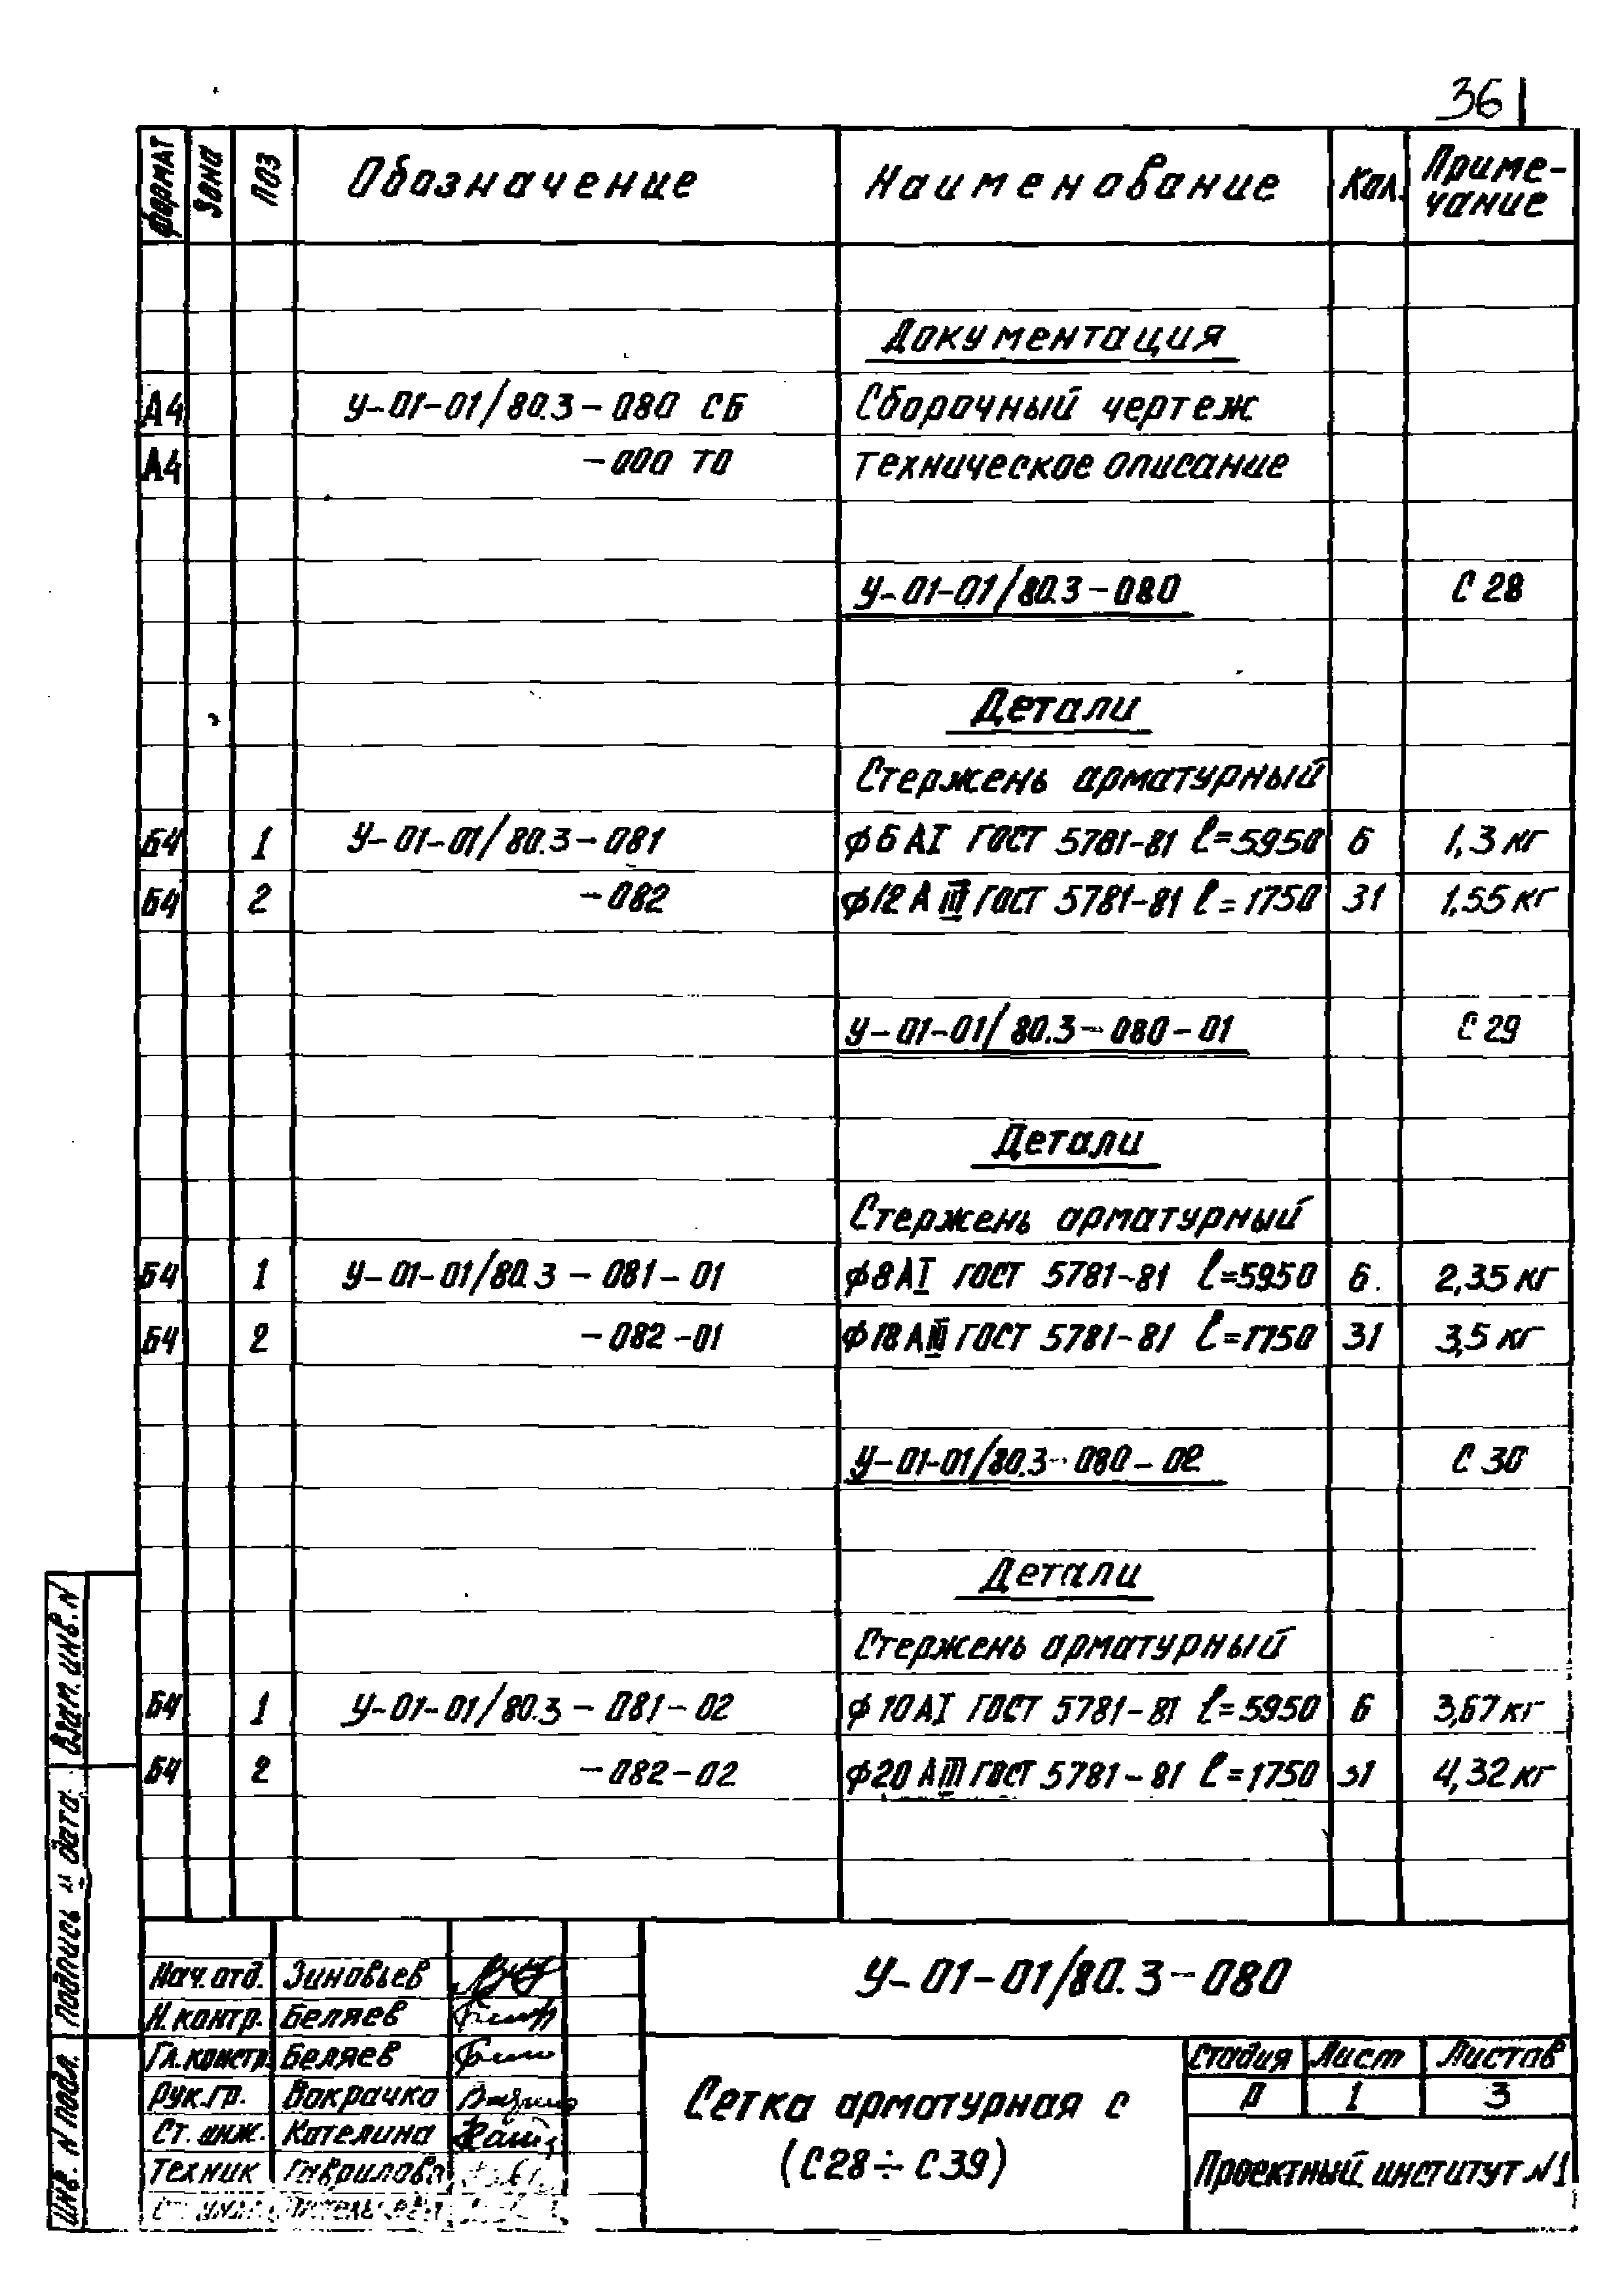 36
Формат Зона Поз Обозначение Наименование Кол. Приме-
чание
Документация
А4 У-01-01/80.3-080 СБ Сборочный чертеж
А4 -000 ТО Техническое описание
У-01-01/80.3-080 С 28
Детали
Стержень арматурный
Б4 1 У-01-01/80.3-081 ф6 АI ГОСТ 5781-81 ℓ=5950 6 1,3 кг
Б4 2 -082 ф12 АIII ГОСТ 5781-81 ℓ=1750 31 1,55 кг
У-01-01/80.3-080-01 С 29
Детали
Стержень арматурный
Б4 1 У-01-01/80.3-081-01 ф8 АI ГОСТ 5781-81 ℓ=5950 6. 2,35 кг
Б4 2 -082-01 ф18 АIII ГОСТ 5781-81 ℓ=1750 31 3,5 кг
У-01-01/80.3-080-02 С 30
Детали
Стержень арматурный
Б4 1 У-01-01/80.3-081-02 ф10 АI ГОСТ 5781-81 ℓ=5950 6 3,67 кг
Б4 2 -082-02 ф20 АIII ГОСТ 5781-81 ℓ=1750 31 4,32 кг
Взам. инв. N
Подпись и дата
Инв. N подл.
Нач. отд. Зиновьев
Н. контр. Беляев
Гл. констр. Беляев
Рук. гр. Вокрачко
Ст. инж. Котелина
Техник Гаврилова
У-01-01/80.3-080
Сетка арматурная С
(С28÷С39)
Стадия Лист Листов
Р 1 3
Проектный институт №1